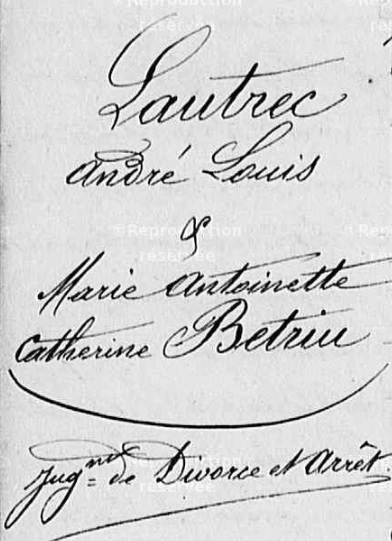 Lautrec
André Louis
&
Marie Antoinette
Catherine Betriu
Jug^nt de Divorce et Arrêt